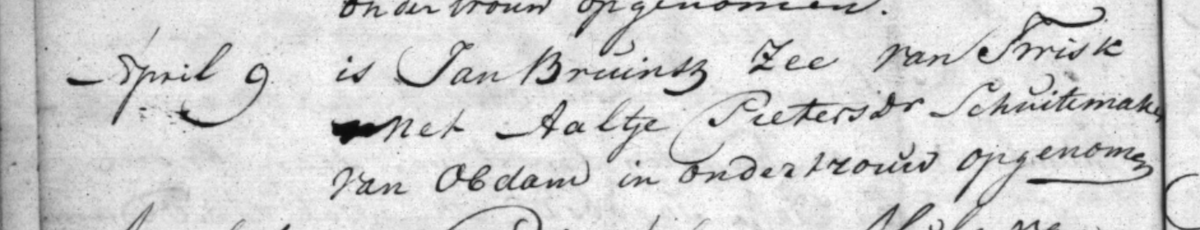 ondertrouw opgenomen.
April 9 is Jan Bruinsz Zee van Twisk
met Aaltje Pietersdr Schuitemaker
van Obdam in ondertrouw opgenomen